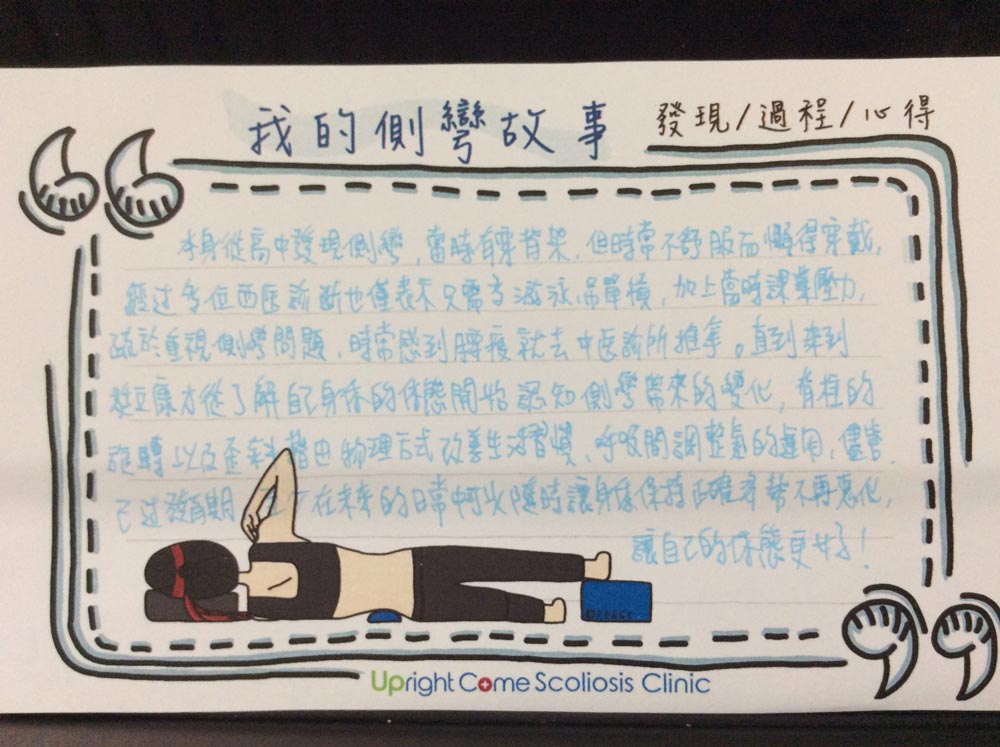 我的側彎故事 發現/過程/心得
本身從高中發現側彎,當時有穿背架,但時常不舒服而懶得穿戴,
經過多位西医診斷也僅表示只需多游泳、吊單槓,加上當時課業壓力,
疏於重視側彎問題,時常感到腰痠就去中医診所推拿。直到來到
挺立康才從了解自己身体的体態開始認知側彎帶來的變化,脊椎的
旋轉以及歪斜藉由物理方式改善生活習慣、呼吸間調整氣的運用,儘管
已过發育期 在未來的日常中可以隨時讓身体保持正確姿勢不再惡化,
讓自己的体態更好!
Upright Come Scoliosis Clinic